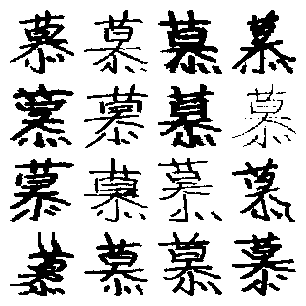 慕慕慕慕
慕慕慕慕
慕慕慕慕
慕慕慕慕